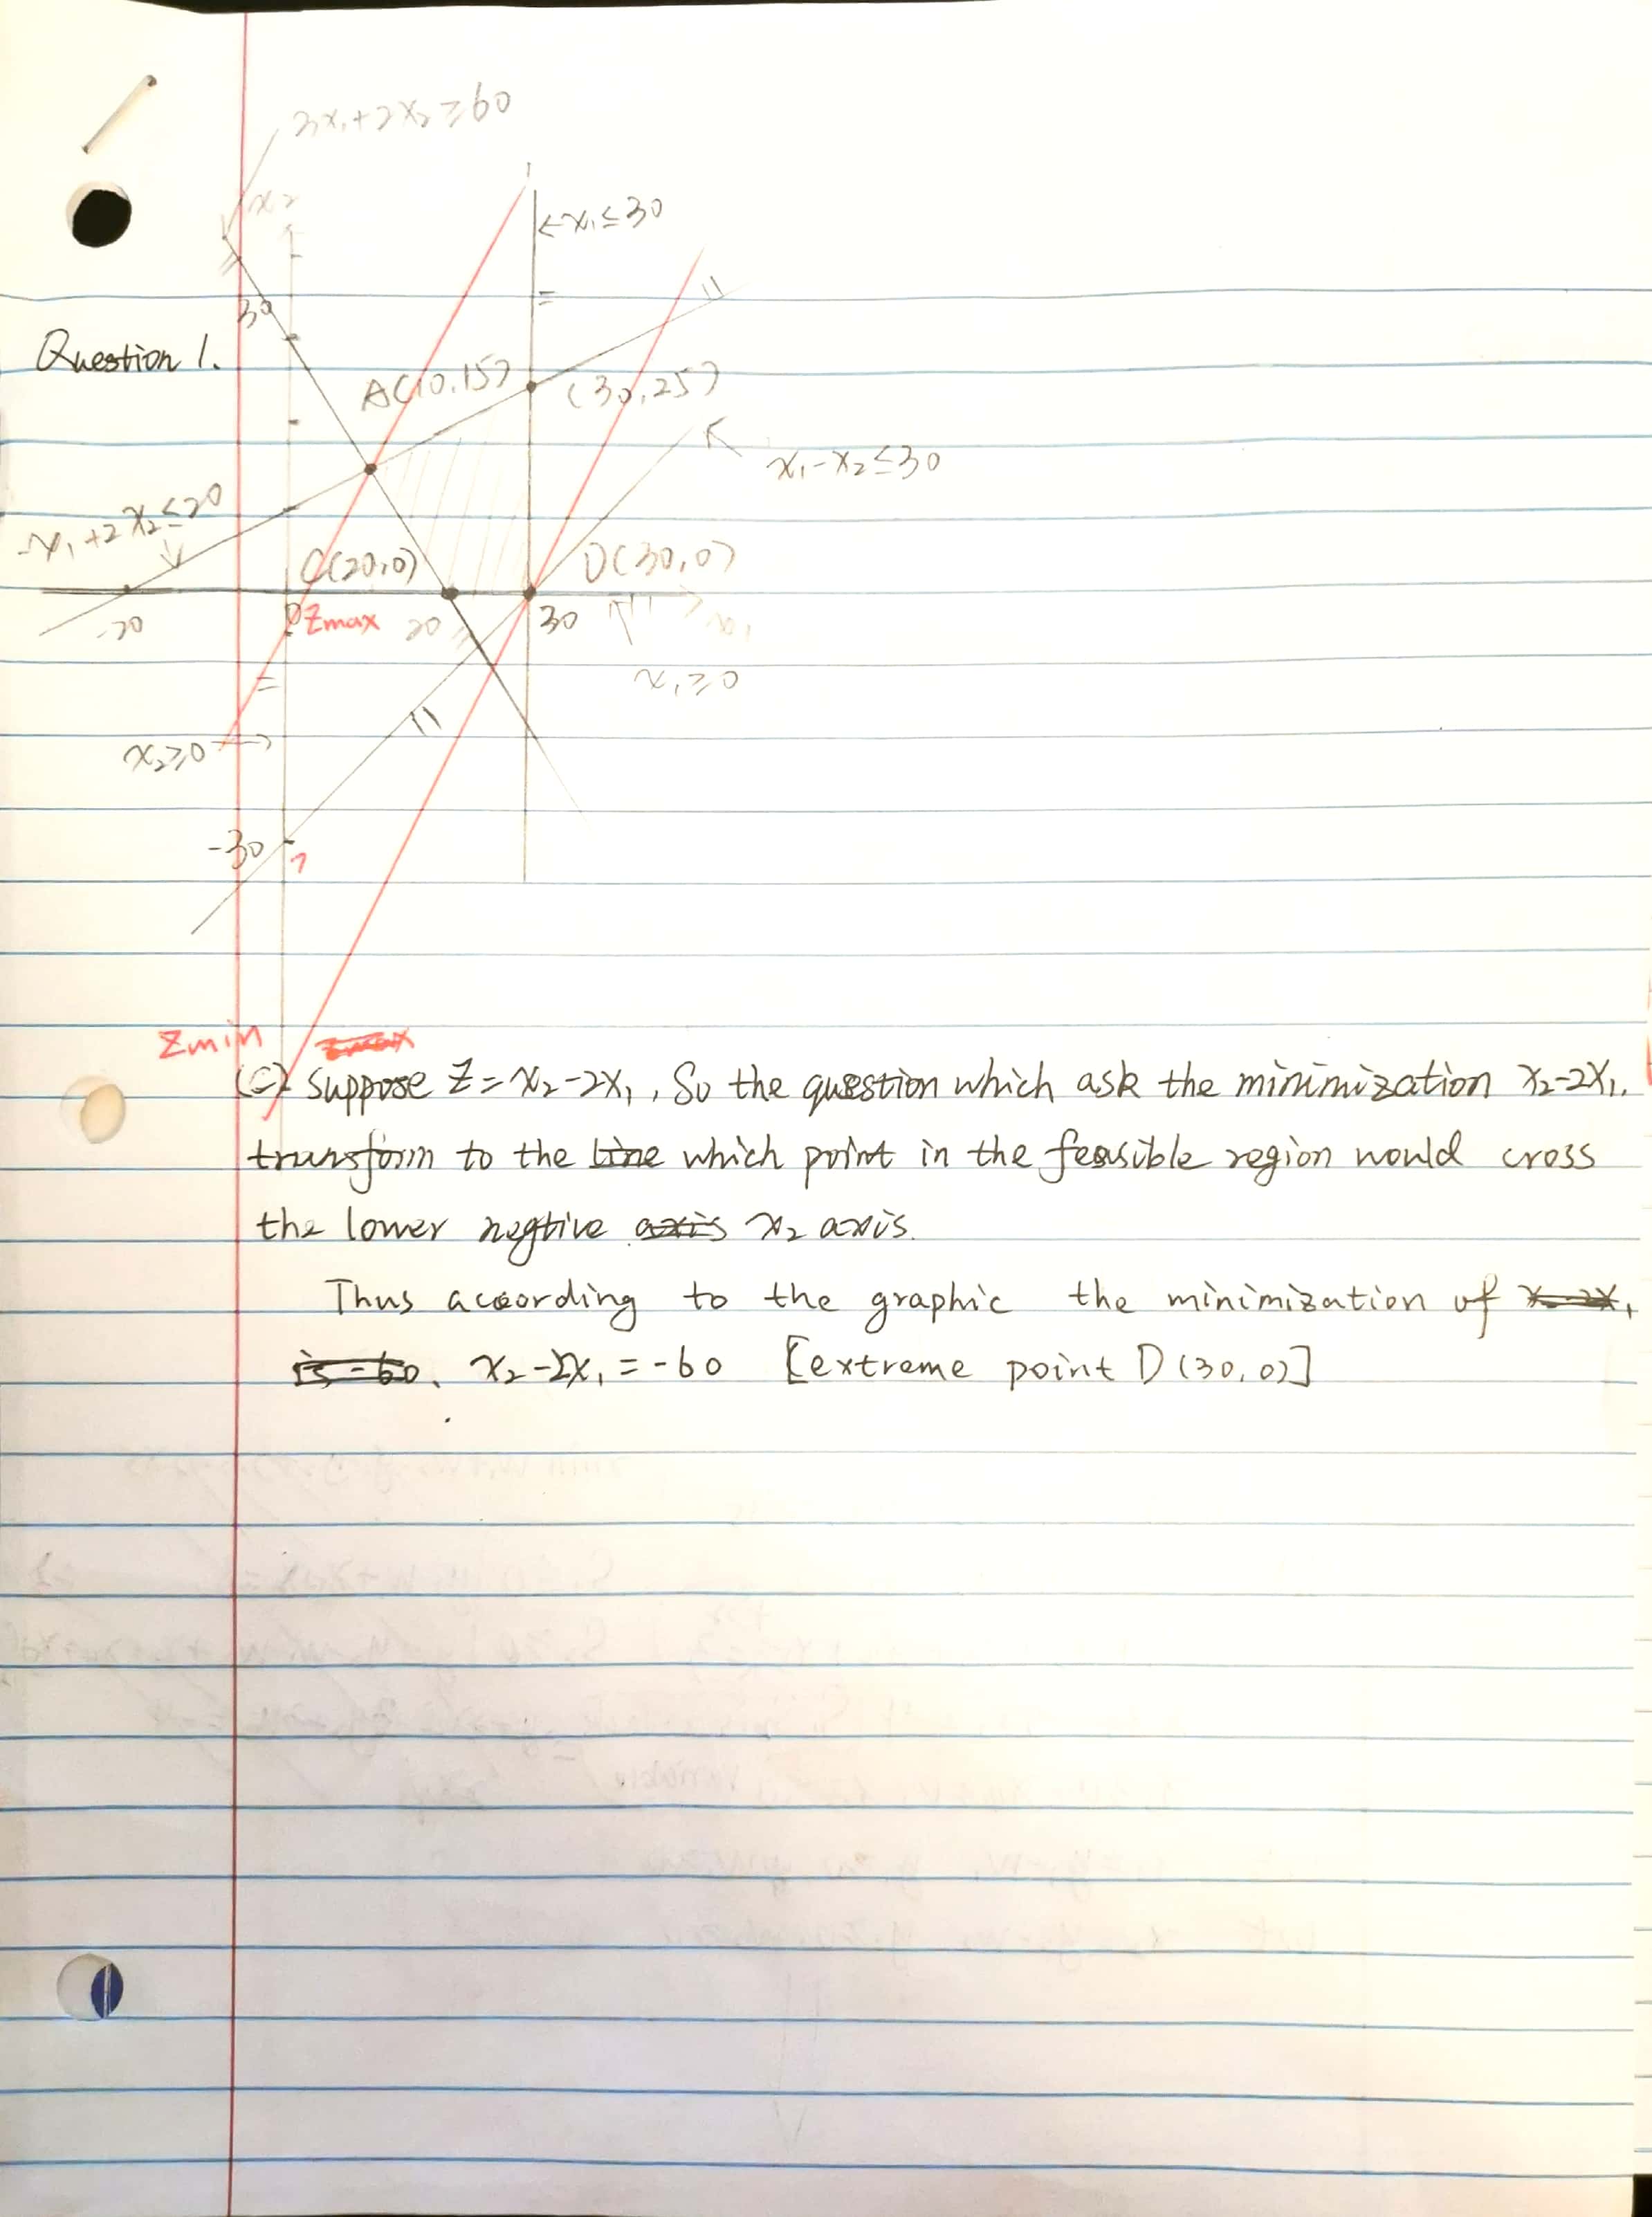 3x₁+2x₂≥60
x₂
←x₁≤30
30
Question 1.
A(10,15)
(30,25)
x₁-x₂≤30
-x₁+2x₂≤20
C(20,0)
D(30,0)
-20
Zmax
20
30
x₁≥0
x₂≥0
-30
Zmin
(C) Suppose Z=x₂-2x₁, So the question which ask the minimization x₂-2x₁.
transform to the line which point in the feasible region would cross
the lower negtive axis x₂ axis.
Thus according to the graphic the minimization of x₂-2x₁
is -60. x₂-2x₁=-60 [extreme point D(30,0)]